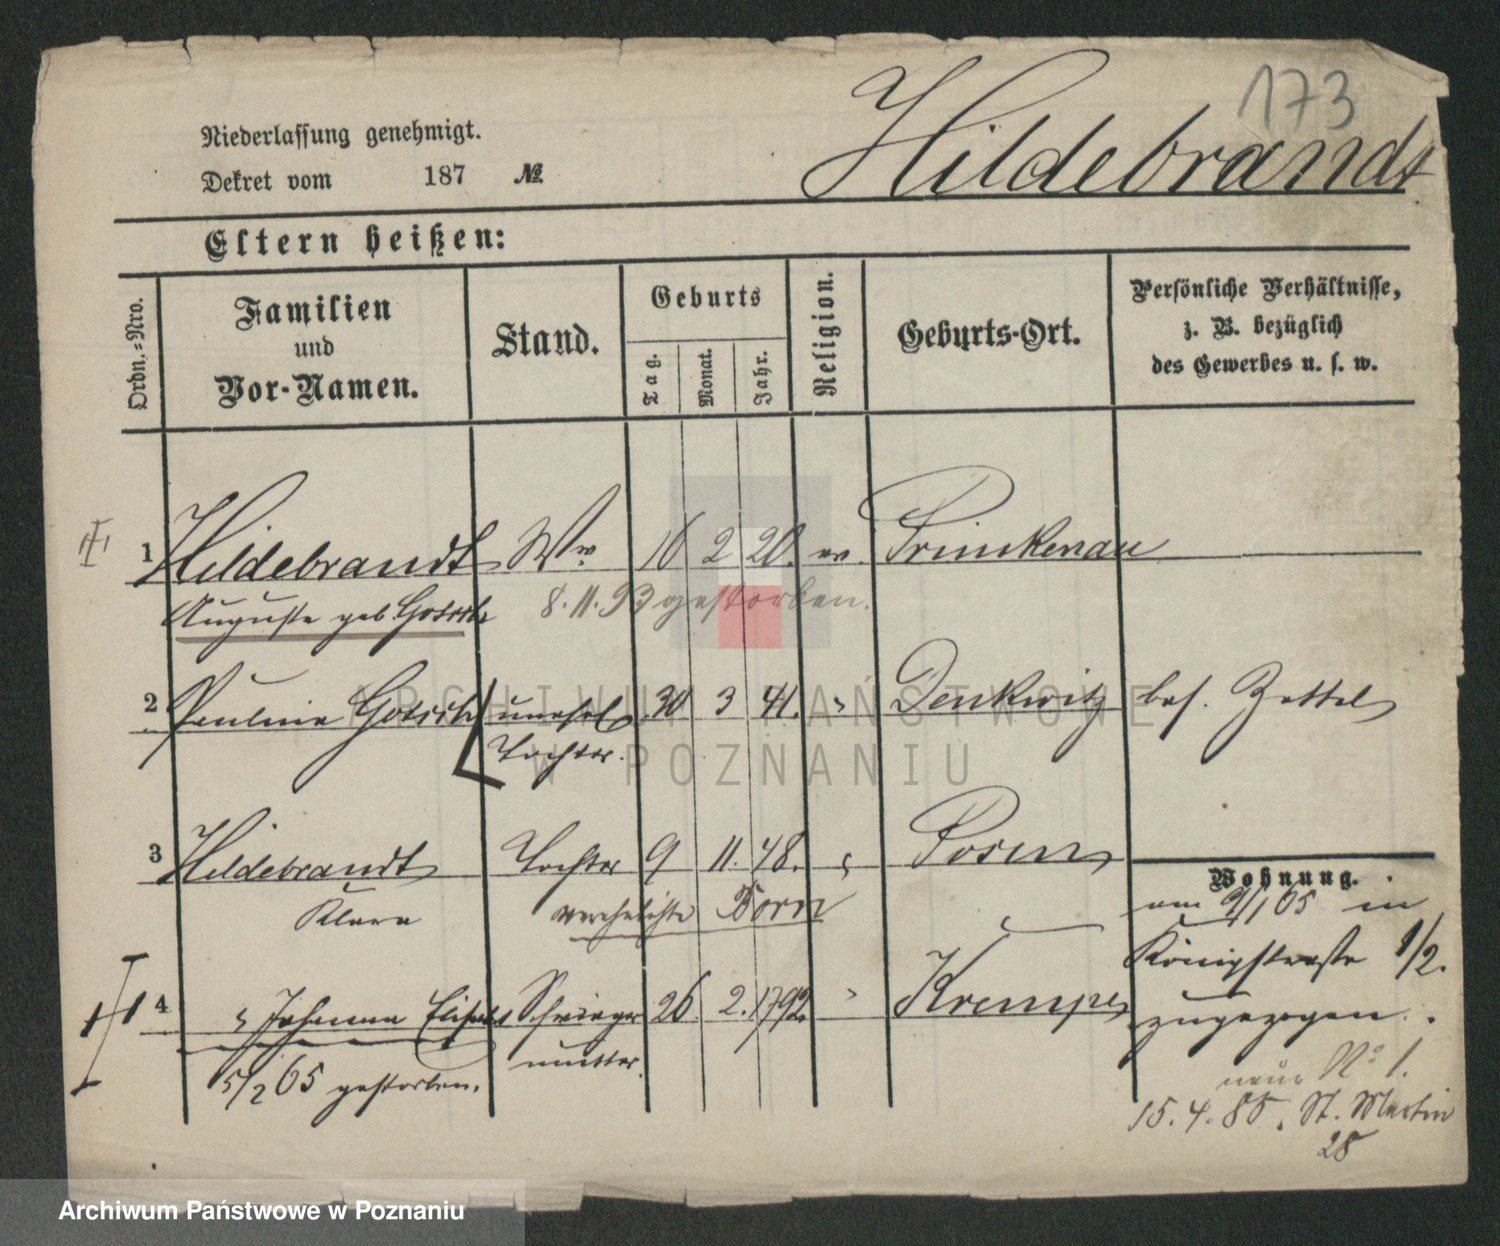 173
Hildebrandt
Niederlassung genehmigt.
Dekret vom 187 №
Eltern heißen:
Ordn.-Nro.
Familien
und
Vor-Namen.
Stand.
Geburts
Tag.
Monat.
Jahr.
Religion.
Geburts-Ort.
Persönliche Verhältnisse,
z. B. bezüglich
des Gewerbes u. s. w.
1 Hildebrandt Ww 16 2 20. ev. Primkenau
Auguste geb.
8. 11. 93 gestorben.
2 Pauline 30 3 41. " Denkwitz bes. Zettel
Tochter.
3 Hildebrandt Tochter 9 11. 48. " Posen
Klara verehelichte Born
Wohnung.
am 9/1 65 in
Königstraße 1/2.
zugezogen.
4 " Johanna Schwieger 26. 2. 1792. "
mutter.
5/2 65 gestorben.
neue No 1.
15. 4. 85. St. Martin
28
ARCHIWUM PAŃSTWOWE
W POZNANIU
Archiwum Państwowe w Poznaniu